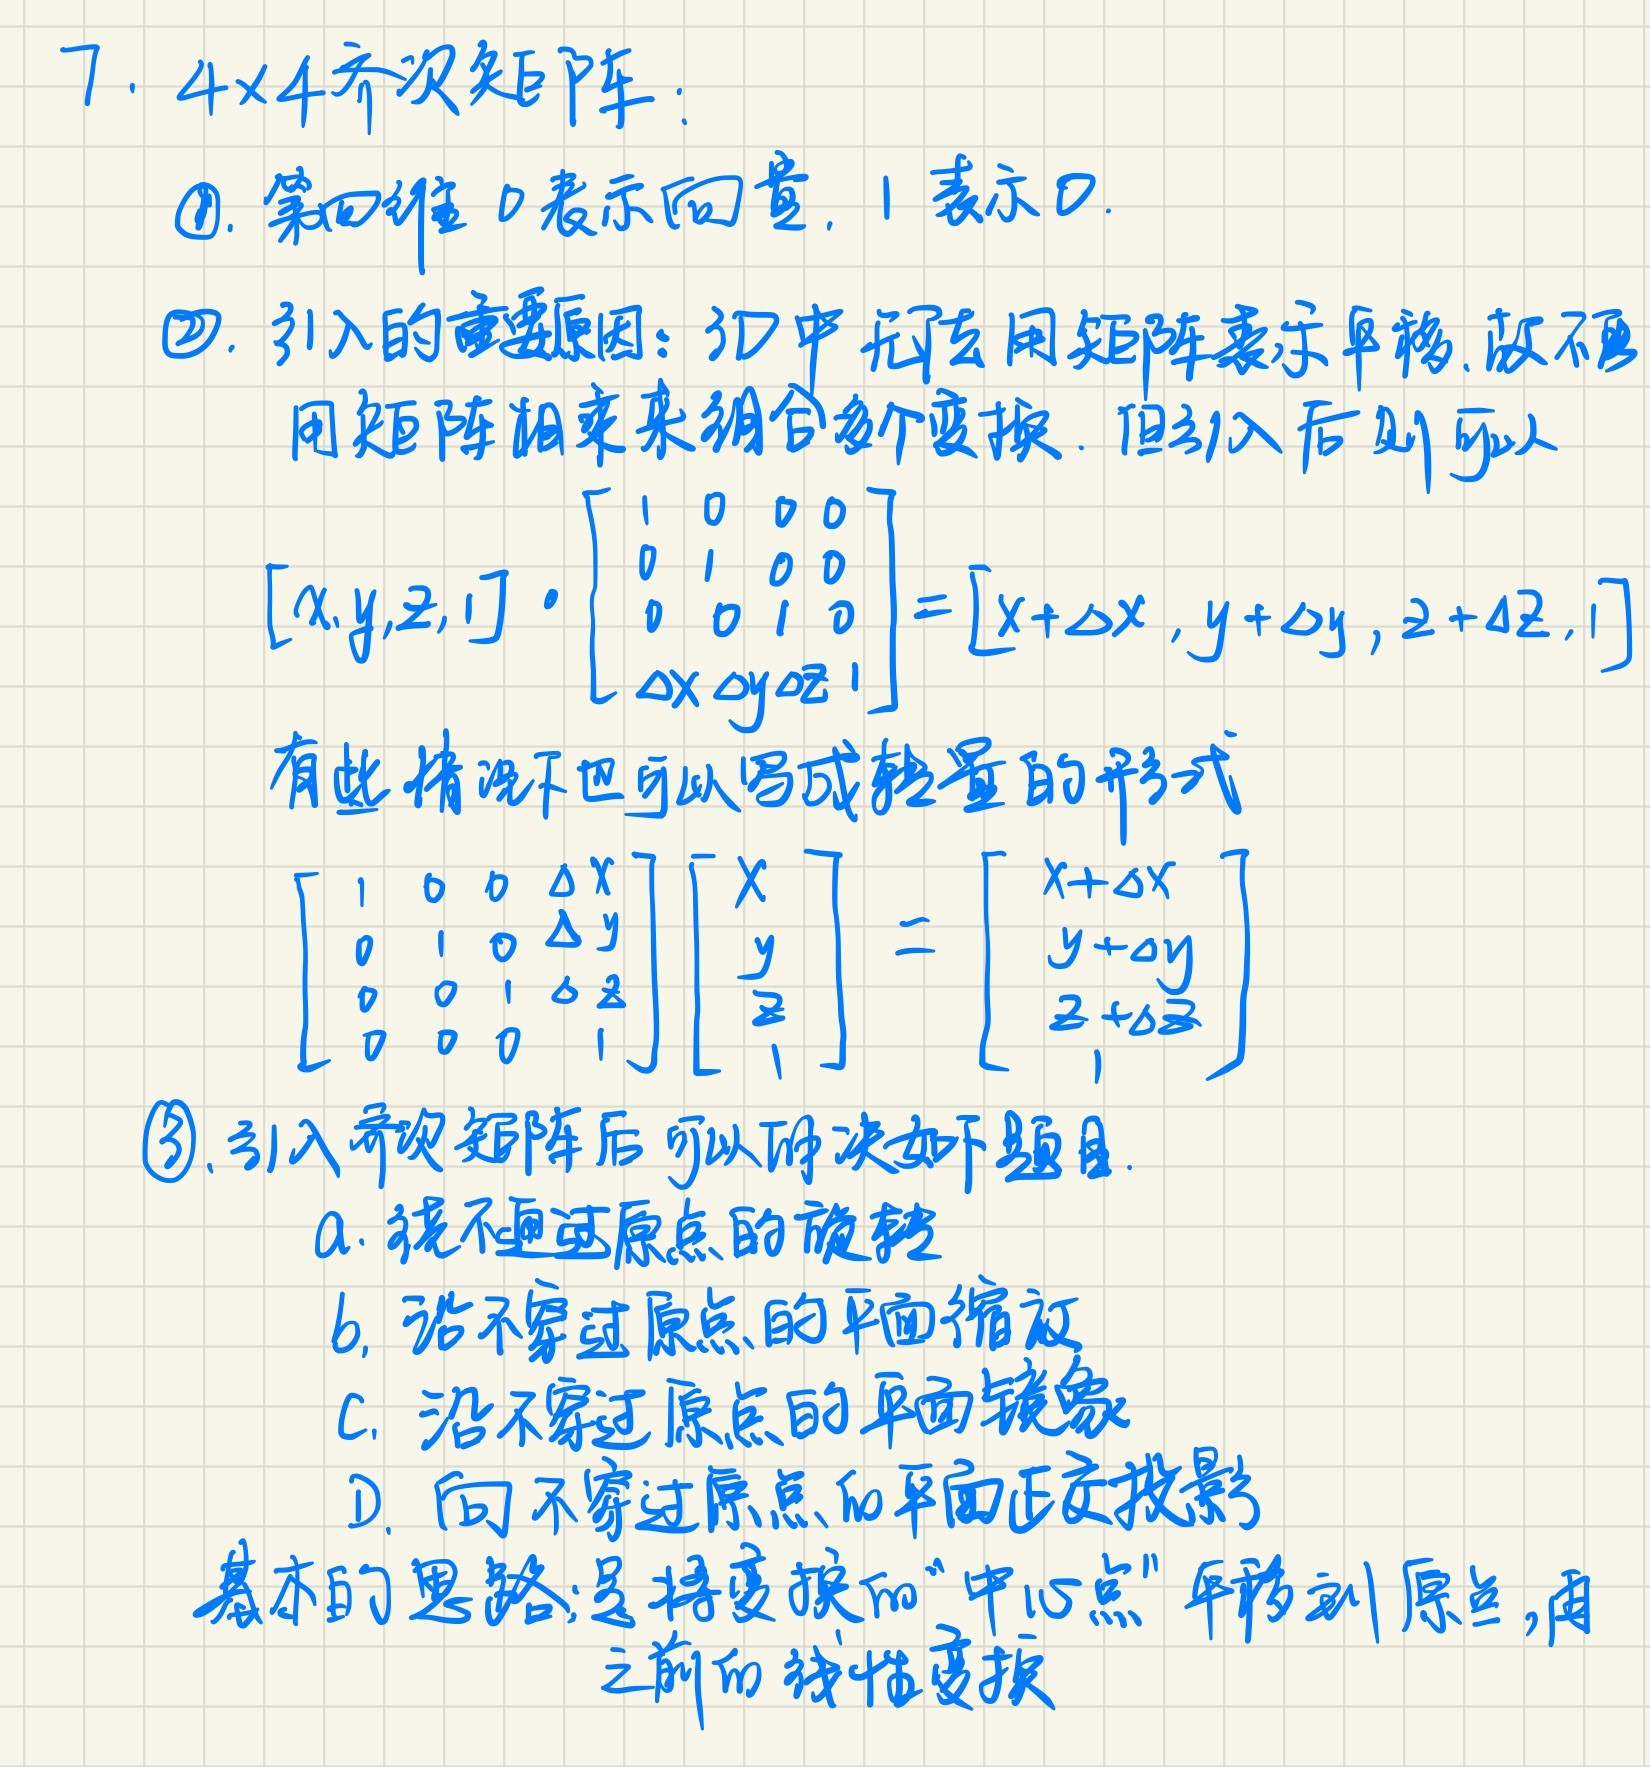 7. 4×4齐次矩阵:
①. 第四维 0表示向量, 1 表示0.
②. 引入的重要原因: 3D中无法用矩阵表示平移, 故不
用矩阵相乘来组合多个变换. 但引入后则可以
[x,y,z,1] · [1 0 0 0; 0 1 0 0; 0 0 1 0; Δx Δy Δz 1] = [x+Δx, y+Δy, z+Δz, 1]
有些情况下也可以写成转置的形式
[1 0 0 Δx; 0 1 0 Δy; 0 0 1 Δz; 0 0 0 1] [x; y; z; 1] = [x+Δx; y+Δy; z+Δz; 1]
③. 引入齐次矩阵后可以解决如下题目.
a. 绕不通过原点的旋转
b. 沿不穿过原点的平面缩放
C. 沿不穿过原点的平面镜象
D. 向不穿过原点的平面正交投影
基本的思路:是将变换的“中心点”平移到原点,用
之前的线性变换